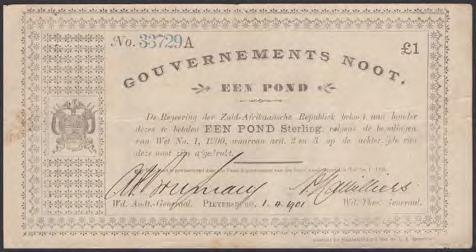 No. 33729 A £1
GOUVERNEMENTS NOOT.
EEN POND
De Regeering der Zuid-Afrikaansche Republiek aan houder
dezes te betalen EEN POND Sterling, volgens de bepalingen
van Wet No. 1, 1900, waarvan art. 2 en 3 op de achter zijde van
deze noot zijn afgedrukt.
Wd. Audt.-Generaal. PIETERSBURG, 1.4.1901 Wd. Thes. Generaal.